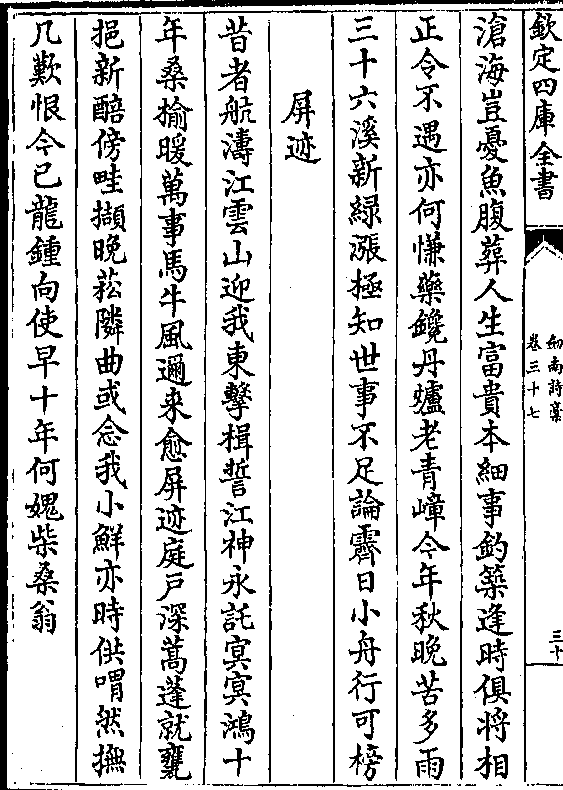 欽定四庫全書
劍南詩稾
卷三十七
三十
滄海豈憂魚腹葬人生富貴本細事釣築逢時俱將相
正令不遇亦何慊藥鑱丹爐老青嶂今年秋晚苦多雨
三十六溪新綠漲極知世事不足論霽日小舟行可榜
屏迹
昔者航濤江雲山迎我東擊楫誓江神永託冥冥鴻十
年桑揄暖萬事馬牛風邇来愈屏迹庭戸深蒿蓬就甕
挹新醅傍畦擷晚菘隣曲或念我小鮮亦時供喟然撫
几歎恨今已龍鍾向使早十年何媿柴桑翁